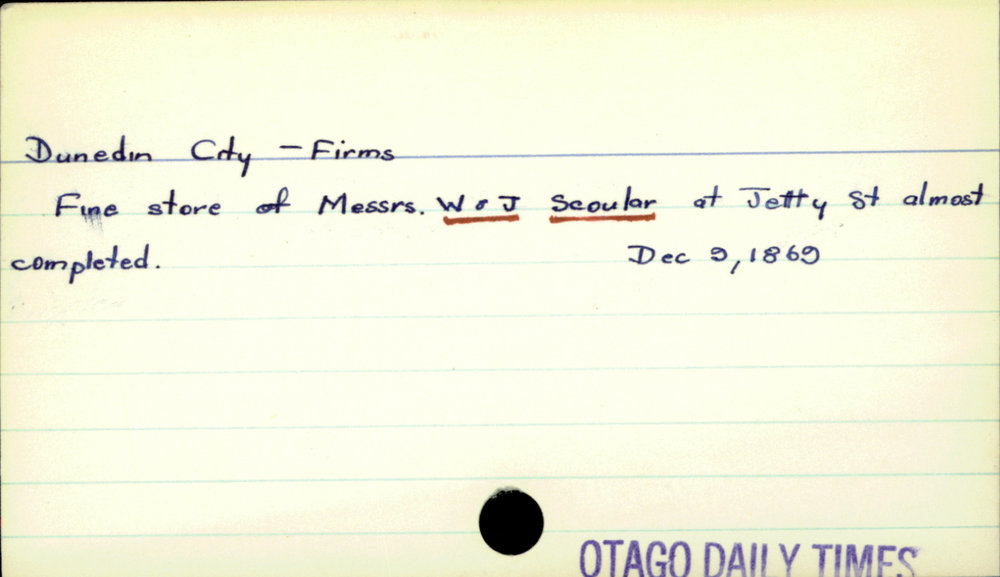 Dunedin City - Firms
Fine store of Messrs. W & J Scoular at Jetty St almost
completed. Dec 9, 1869
OTAGO DAILY TIMES